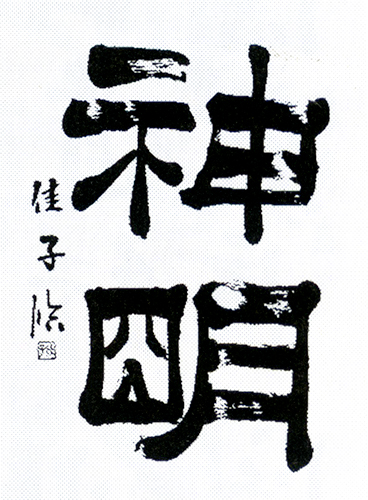 神
明
佳子臨